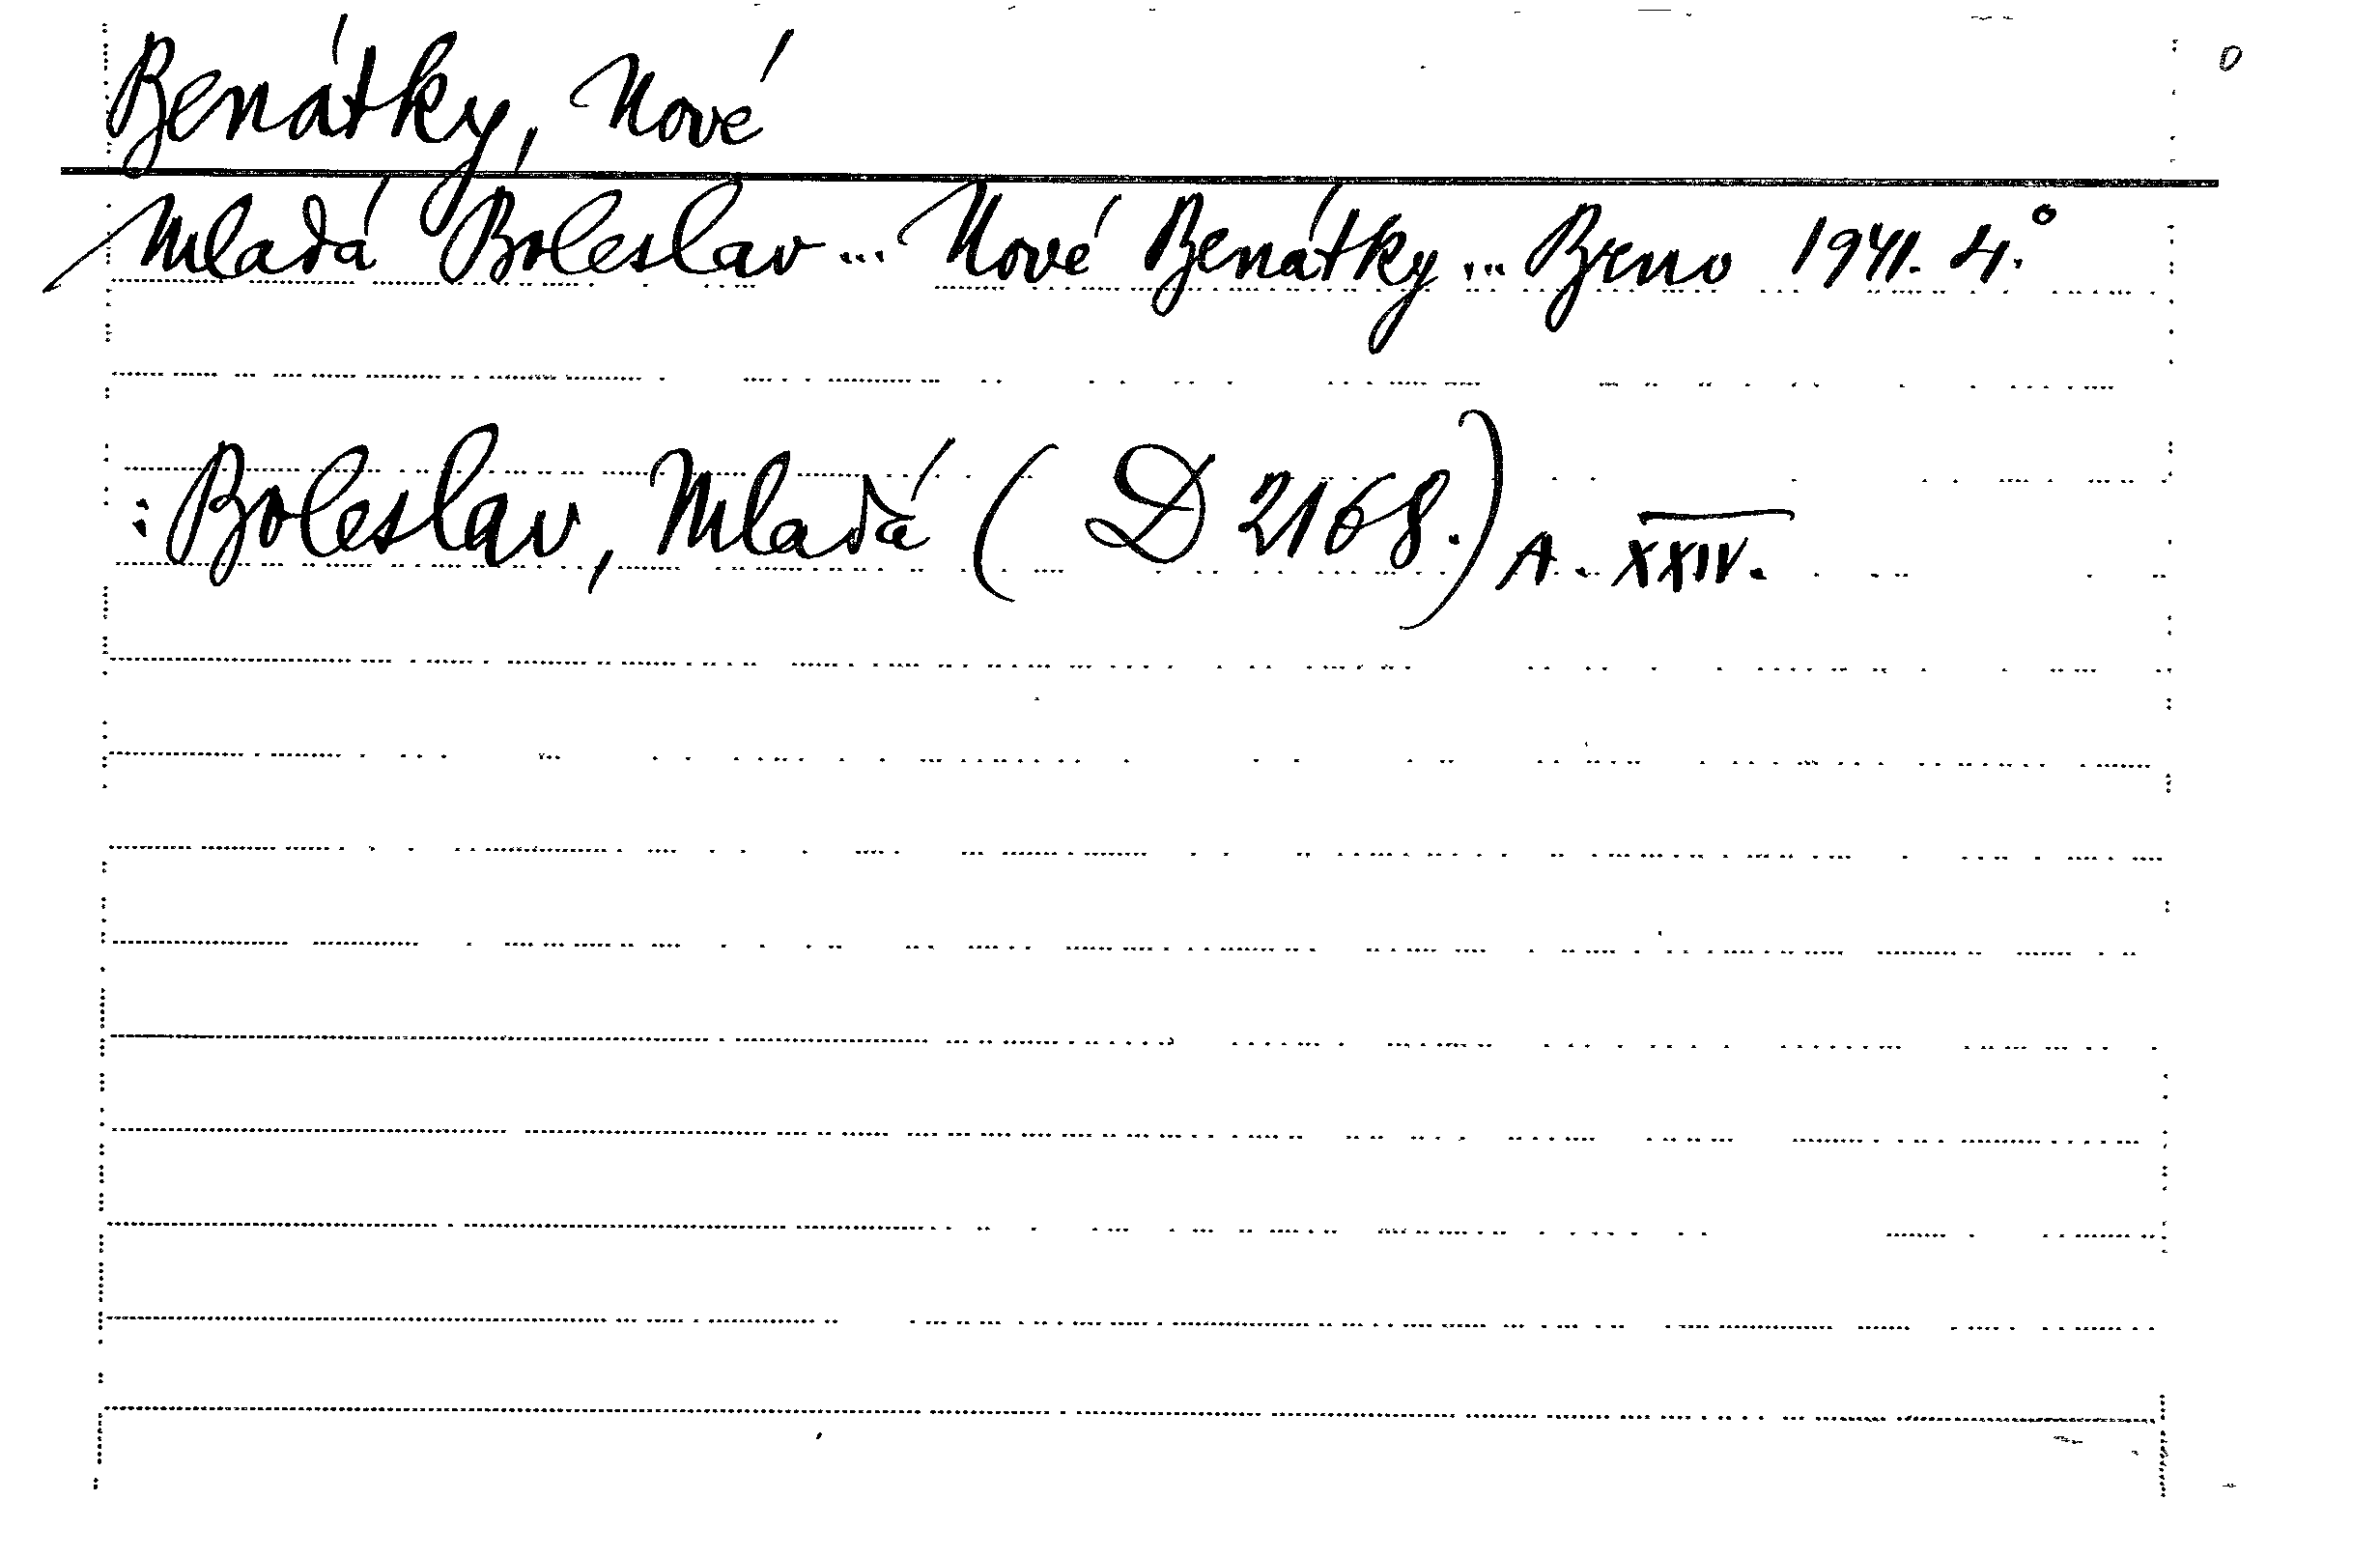 Benátky, Nové
Mladá Boleslav... Nové Benátky... Brno 1941. 4.°
: Boleslav, Mladá ( D 2168.) A. XXIV.